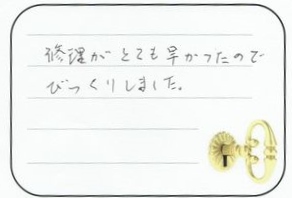 修理がとても早かったので
びっくりしました。